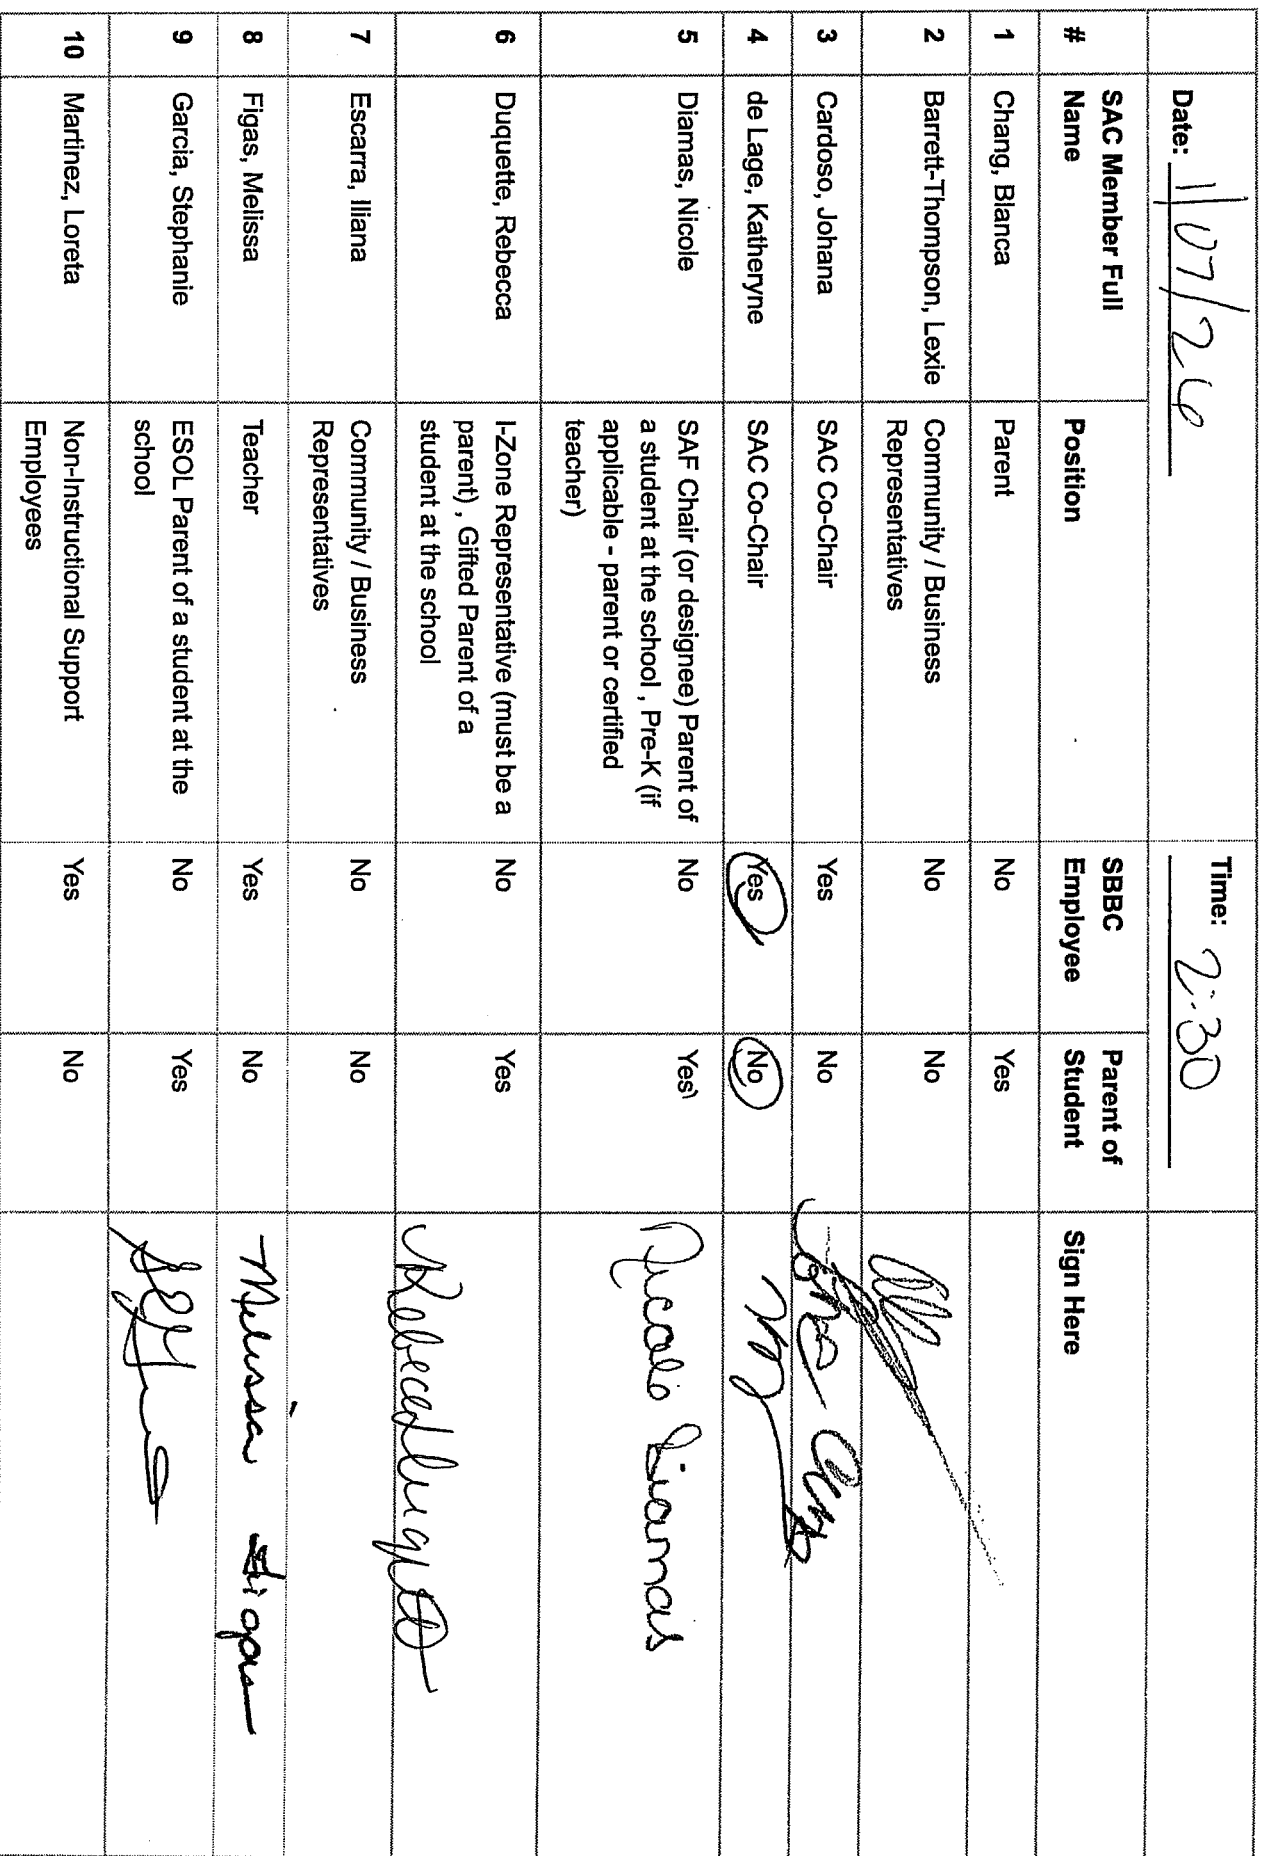 Date: 1/07/26 Time: 2:30
# SAC Member Full Name Position SBBC Employee Parent of Student Sign Here
1 Chang, Blanca Parent No Yes
2 Barrett-Thompson, Lexie Community / Business Representatives No No
3 Cardoso, Johana SAC Co-Chair Yes No
4 de Lage, Katheryne SAC Co-Chair Yes No
5 Diamas, Nicole SAF Chair (or designee) Parent of
a student at the school , Pre-K (if
applicable - parent or certified
teacher) No Yes Nicole Diamas
6 Duquette, Rebecca I-Zone Representative (must be a
parent) , Gifted Parent of a
student at the school No Yes Rebecca Duquette
7 Escarra, Iliana Community / Business
Representatives No No
8 Figas, Melissa Teacher Yes No Melissa Figas
9 Garcia, Stephanie ESOL Parent of a student at the
school No Yes
10 Martinez, Loreta Non-Instructional Support
Employees Yes No